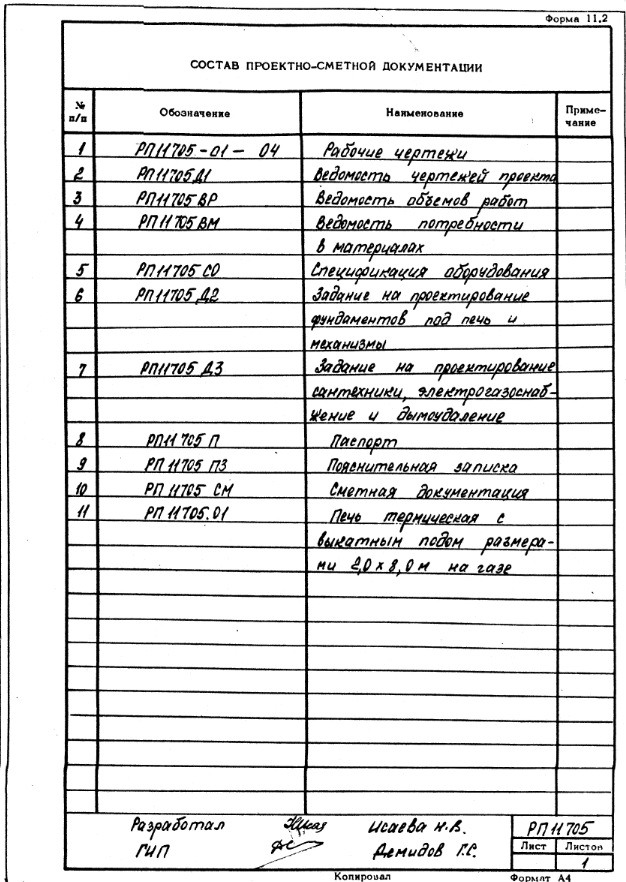 Форма 11.2
СОСТАВ ПРОЕКТНО-СМЕТНОЙ ДОКУМЕНТАЦИИ
№ п/п Обозначение Наименование Приме-
чание
1 РП11705-01-04 Рабочие чертежи
2 РП11705Д1 Ведомость чертежей проекта
3 РП11705ВР Ведомость объемов работ
4 РП11705ВМ Ведомость потребности
в материалах
5 РП11705 СО Спецификация оборудования
6 РП11705 Д2 Задание на проектирование
фундаментов под печь и
механизмы
7 РП11705 Д3 Задание на проектирование
сантехники, электрогазоснаб-
жение и дымоудаление
8 РП11705 П Паспорт
9 РП11705 ПЗ Пояснительная записка
10 РП11705 СМ Сметная документация
11 РП11705.01 Печь термическая с
выкатным подом размера-
ми 2,0 x 8,0 м на газе
Разработал Исаева Н.В. РП11705
ГИП Демидов Г.С. Лист Листов
1
Копировал Формат А4